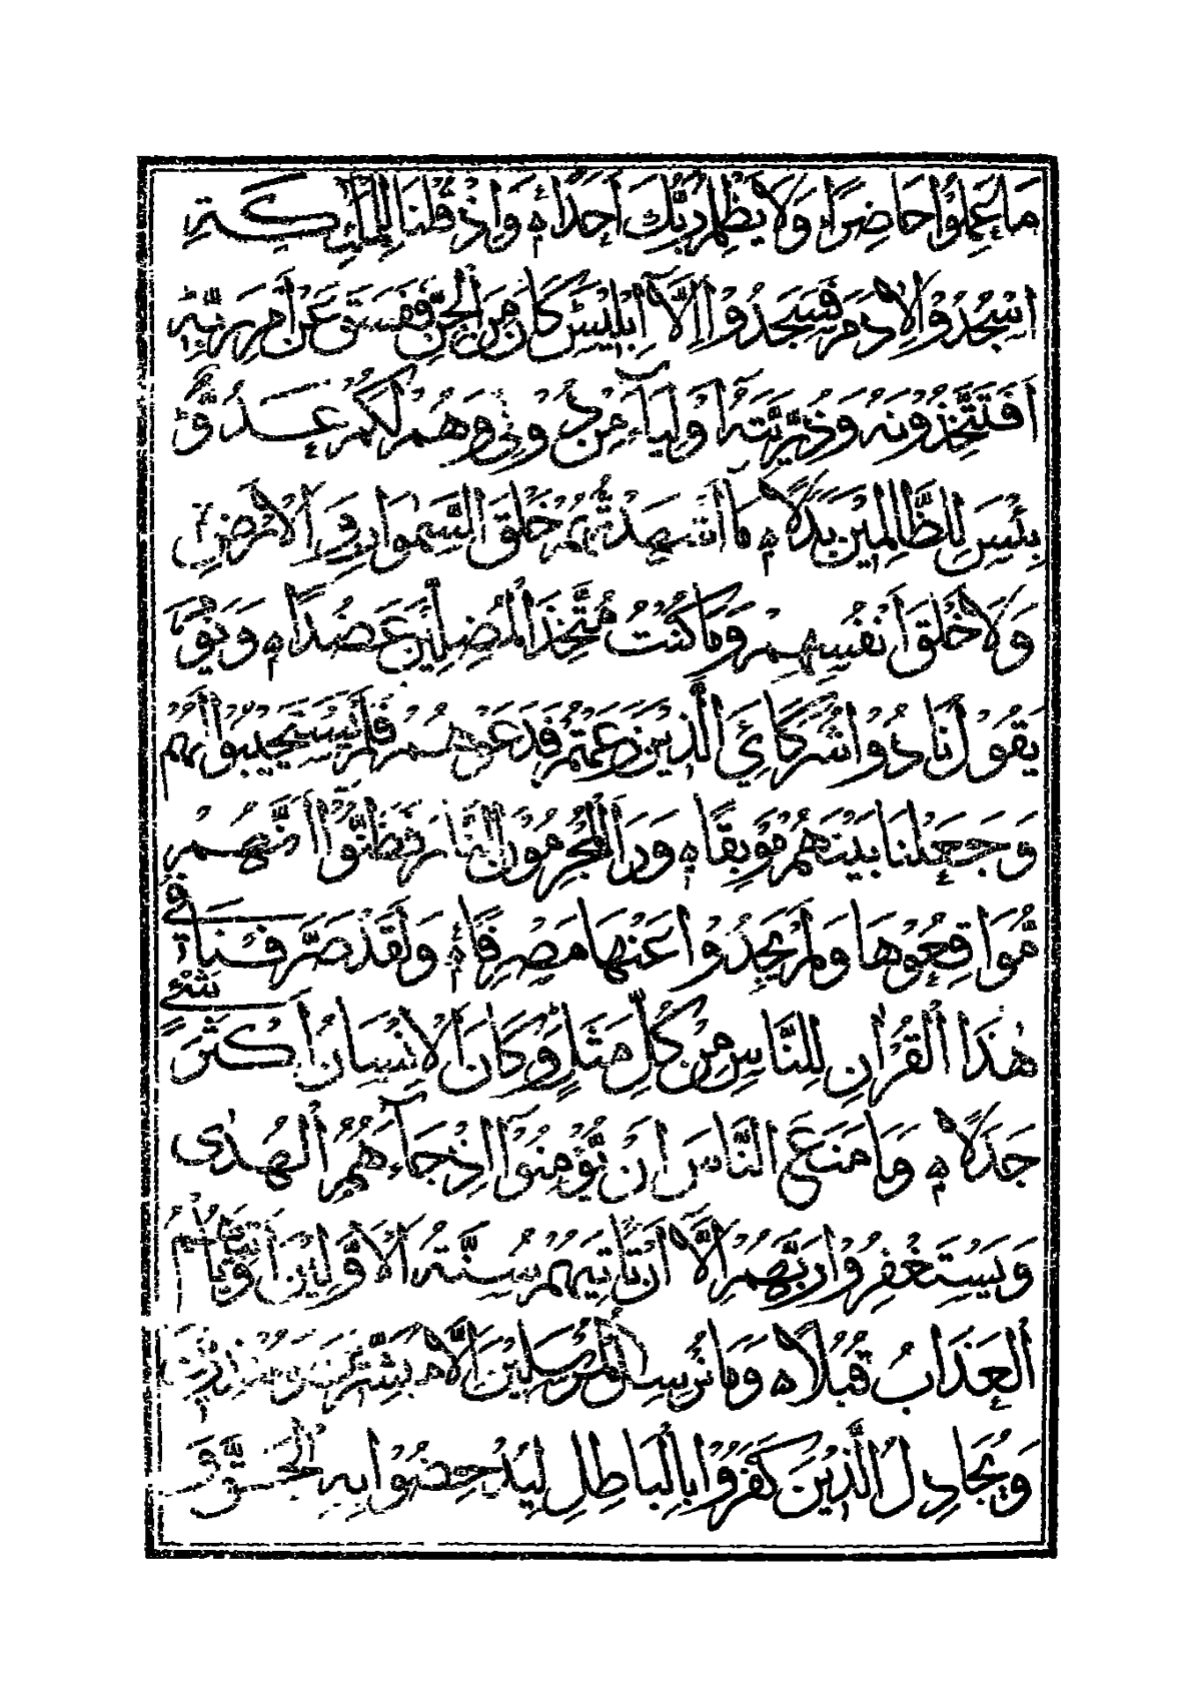 مَا عَمِلُوا حَاضِرًا وَلَا يَظْلِمُ رَبُّكَ أَحَدًا ه وَإِذْ قُلْنَا لِلْمَلَائِكَةِ
اسْجُدُوا لِآدَمَ فَسَجَدُوا إِلَّا إِبْلِيسَ كَانَ مِنَ الْجِنِّ فَفَسَقَ عَنْ أَمْرِ رَبِّهِ
أَفَتَتَّخِذُونَهُ وَذُرِّيَّتَهُ أَوْلِيَاءَ مِنْ دُونِي وَهُمْ لَكُمْ عَدُوٌّ
بِئْسَ لِلظَّالِمِينَ بَدَلًا ه مَا أَشْهَدْتُهُمْ خَلْقَ السَّمٰوَاتِ وَالْأَرْضِ
وَلَا خَلْقَ أَنْفُسِهِمْ وَمَا كُنْتُ مُتَّخِذَ الْمُضِلِّينَ عَضُدًا ه وَيَوْمَ
يَقُولُ نَادُوا شُرَكَائِيَ الَّذِينَ زَعَمْتُمْ فَدَعَوْهُمْ فَلَمْ يَسْتَجِيبُوا لَهُمْ
وَجَعَلْنَا بَيْنَهُمْ مَوْبِقًا ه وَرَأَى الْمُجْرِمُونَ النَّارَ فَظَنُّوا أَنَّهُمْ
مُوَاقِعُوهَا وَلَمْ يَجِدُوا عَنْهَا مَصْرِفًا ه وَلَقَدْ صَرَّفْنَا فِي
هٰذَا الْقُرْآنِ لِلنَّاسِ مِنْ كُلِّ مَثَلٍ وَكَانَ الْإِنْسَانُ أَكْثَرَ شَيْءٍ
جَدَلًا ه وَمَا مَنَعَ النَّاسَ أَنْ يُؤْمِنُوا إِذْ جَاءَهُمُ الْهُدٰى
وَيَسْتَغْفِرُوا رَبَّهُمْ إِلَّا أَنْ تَأْتِيَهُمْ سُنَّةُ الْأَوَّلِينَ أَوْ يَأْتِيَهُمُ
الْعَذَابُ قُبُلًا ه وَمَا نُرْسِلُ الْمُرْسَلِينَ إِلَّا مُبَشِّرِينَ وَمُنْذِرِينَ
وَيُجَادِلُ الَّذِينَ كَفَرُوا بِالْبَاطِلِ لِيُدْحِضُوا بِهِ الْحَقَّ وَ